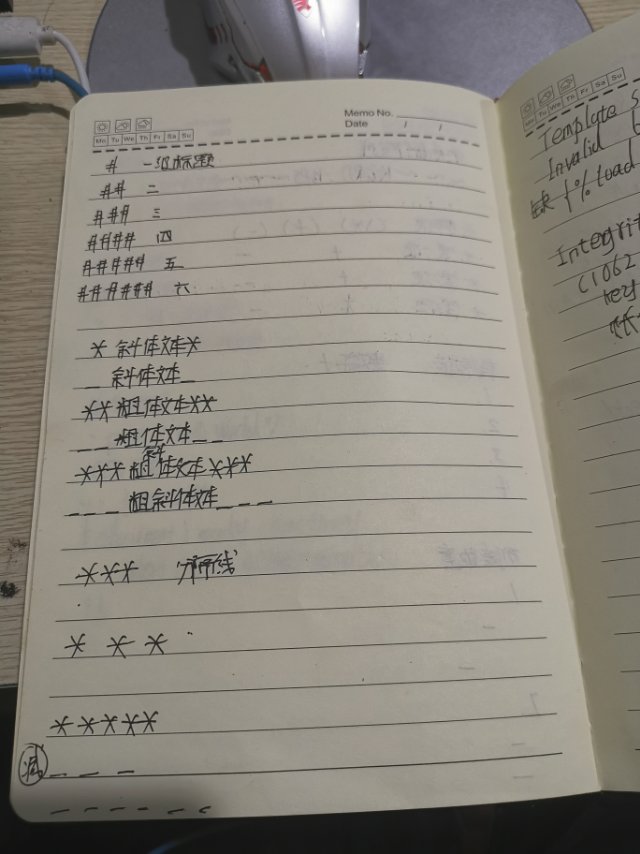 Memo No.
Date / /
Mo Tu We Th Fr Sa Su
# 一级标题
## 二
### 三
#### 四
##### 五
###### 六
* 斜体文本*
_ 斜体文本_
** 粗体文本**
__ 粗体文本__
*** 粗斜体文本***
___ 粗斜体文本___
*** 分隔线
* * *
*****
- - -
- - - - - -
Mo Tu We Th Fr Sa Su
Template s
Invalid b
缺 {% load
Intergrit
(1062
key